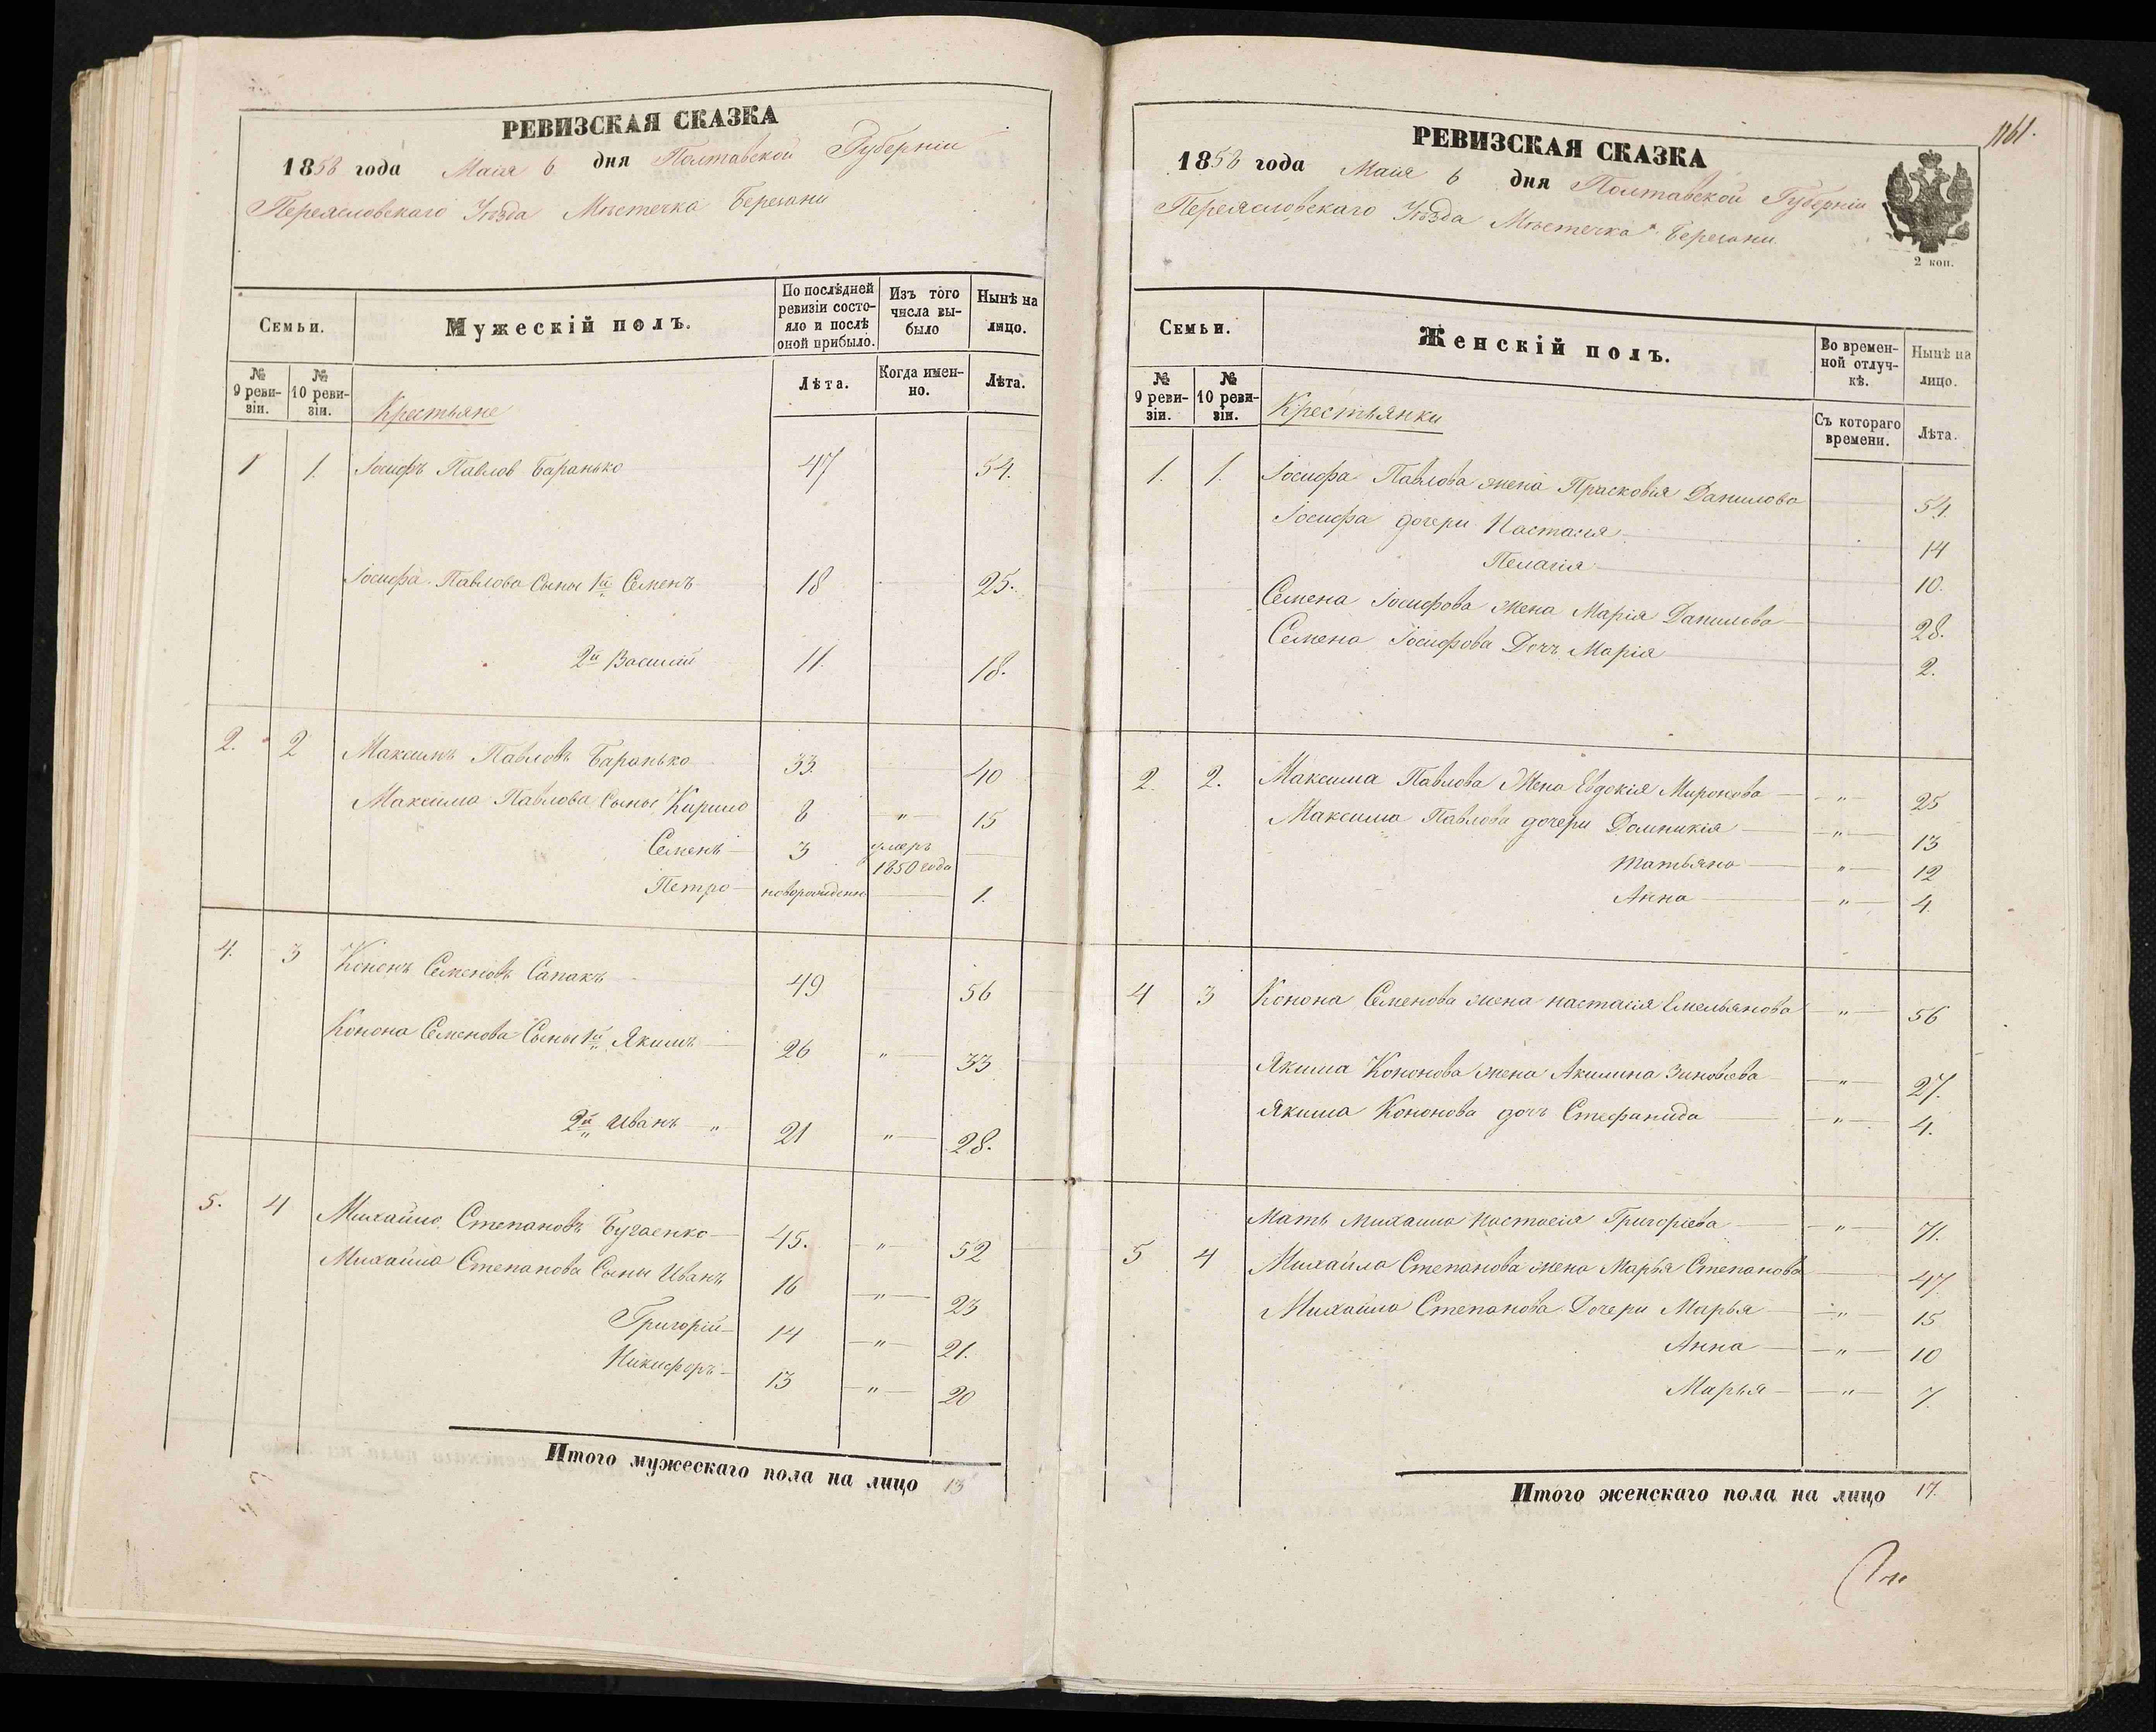 РЕВИЗСКАЯ СКАЗКА
1858 года Маія 6 дня Полтавской Губерніи
Переясловскаго Уѣзда Мѣстечка Березани
Семьи.
Мужескій полъ.
По послѣдней ревизіи состояло и послѣ оной прибыло.
Изъ того числа выбыло
Нынѣ на лицо.
№ 9 ревизіи.
№ 10 ревизіи.
Лѣта.
Когда именно.
Лѣта.
Крестьяне
1 1. Іосифъ Павлов Баранько 47 54.
Іосифа Павлова Сыны 1й Семенъ 18 25.
2й Василій 11. 18.
2. 2 Максимъ Павловъ Баранько 33. 40
Максима Павлова Сыны Кирило 8 " 15
Семенъ 3 умеръ 1850 года
Петро новорожденн 1.
4. 3 Кононъ Семеновъ Сапакъ 49 56
Конона Семенова Сыны 1й Якимъ 26 " 33
2й Иванъ " 21 " 28.
5. 4 Михайло Степановъ Бугаенко 45. " 52
Михайла Степанова Сыны Иванъ 16 " 23
Григорій 14 " 21.
Никифоръ 13 " 20
Итого мужескаго пола на лицо 13
1161.
РЕВИЗСКАЯ СКАЗКА
1858 года Маія 6 дня Полтавской Губерніи
Переясловскаго Уѣзда Мѣстечка Березани.
2 коп.
Семьи.
Женскій полъ.
Во временной отлучкѣ.
Нынѣ на лицо.
№ 9 ревизіи.
№ 10 ревизіи.
Съ котораго времени.
Лѣта.
Крестьянки
1. 1. Іосифа Павлова жена Прасковія Данилова 54.
Іосифа дочери Настасія 14
Пелагія 10.
Семена Іосифова жена Марія Данилова 28.
Семена Іосифова Дочъ Марія 2.
2. 2. Максима Павлова Жена Евдокія Миронова " 25
Максима Павлова дочери Домникія " 13
Татьяна " 12
Анна " 4.
4 3 Конона Семенова жена настасія Емельянова " 56
Якима Кононова жена Акилина Зиновіева " 27.
Якима Кононова дочъ Стефанида " 4.
Мать михаила Настасія Григоріева " 71.
5 4 Михайла Степанова жена Марья Степанова 47
Михайла Степанова Дочери Марья " 15
Анна " 10
Марья " 7.
Итого женскаго пола на лицо 17.